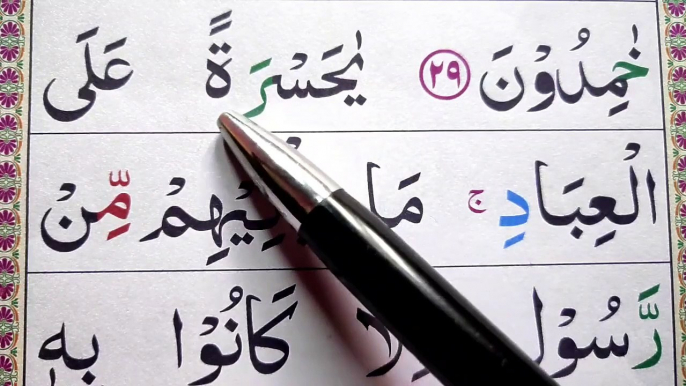 خٰمِدُوْنَ ٢٩ يٰحَسْرَةً عَلَى
الْعِبَادِ ج مَا مِّنْ
رَّسُوْلٍ كَانُوْا بِهٖ